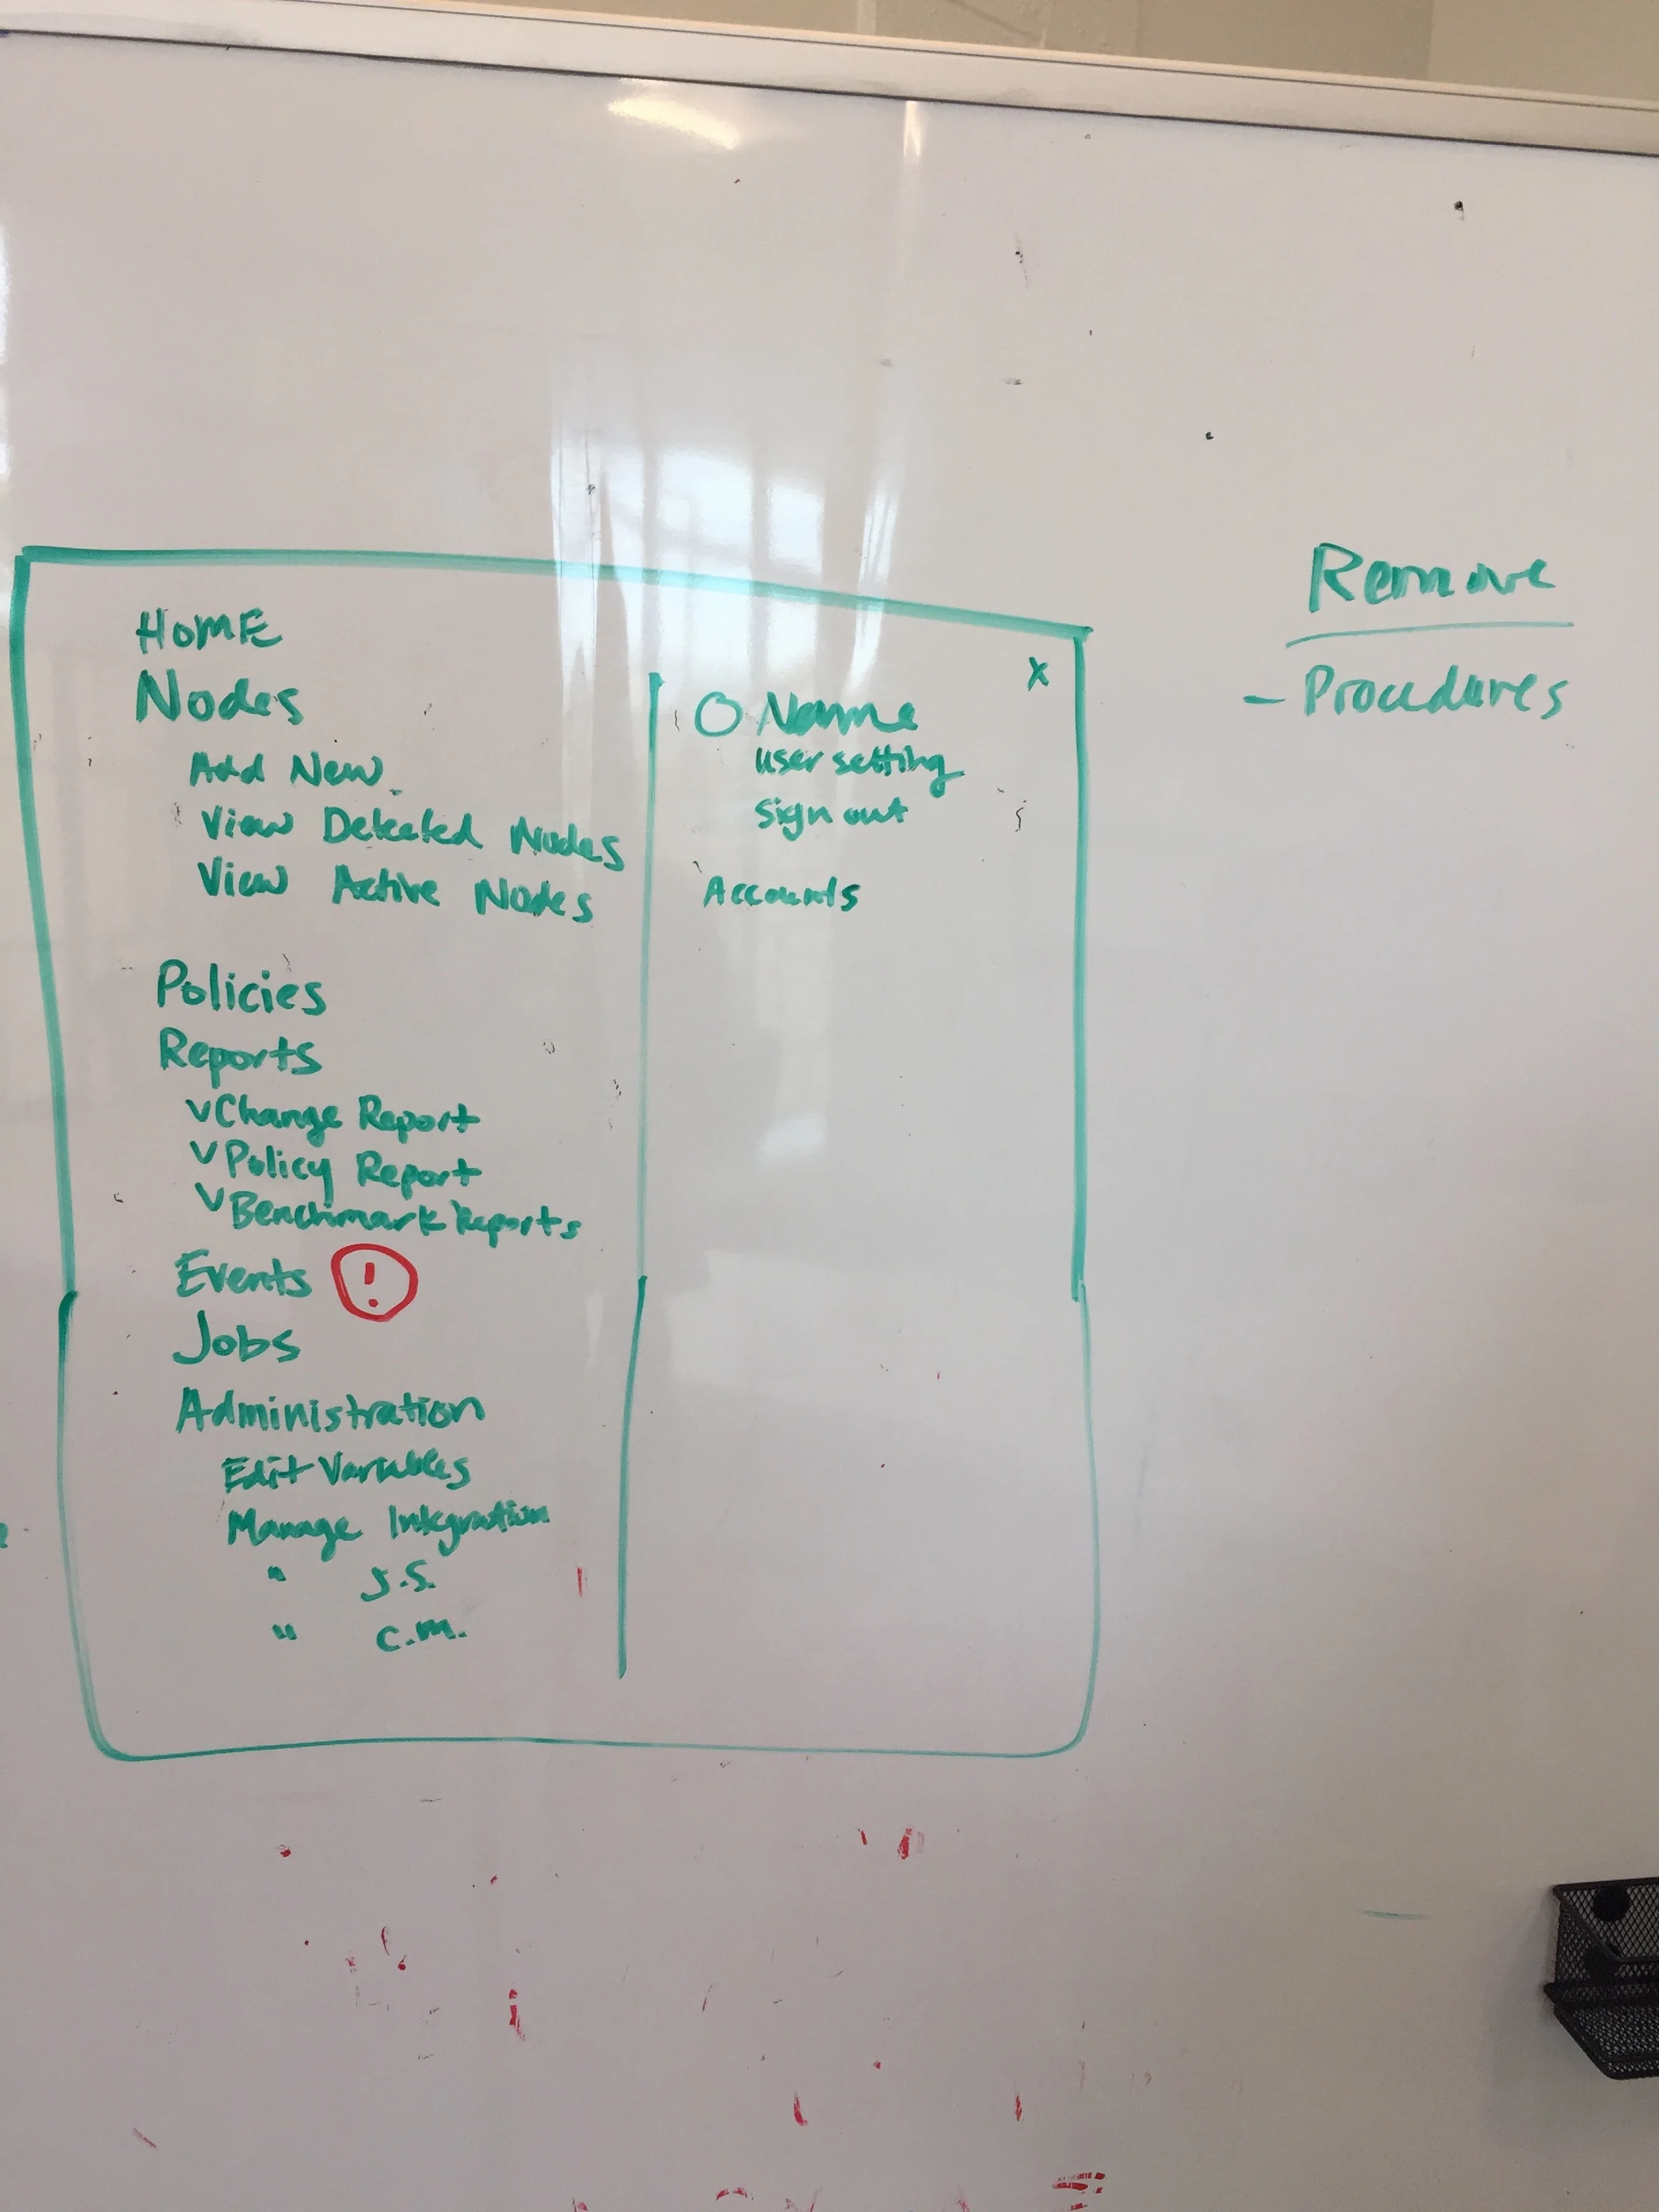 HOME
Nodes
Add New
View Detected Nodes
View Active Nodes
Policies
Reports
v Change Report
v Policy Report
v Benchmark Reports
Events !
Jobs
Administration
Edit Variables
Manage Integration
" J.S.
" C.M.
X
O Name
user setting
sign out
Accounts
Remove
- Procedures